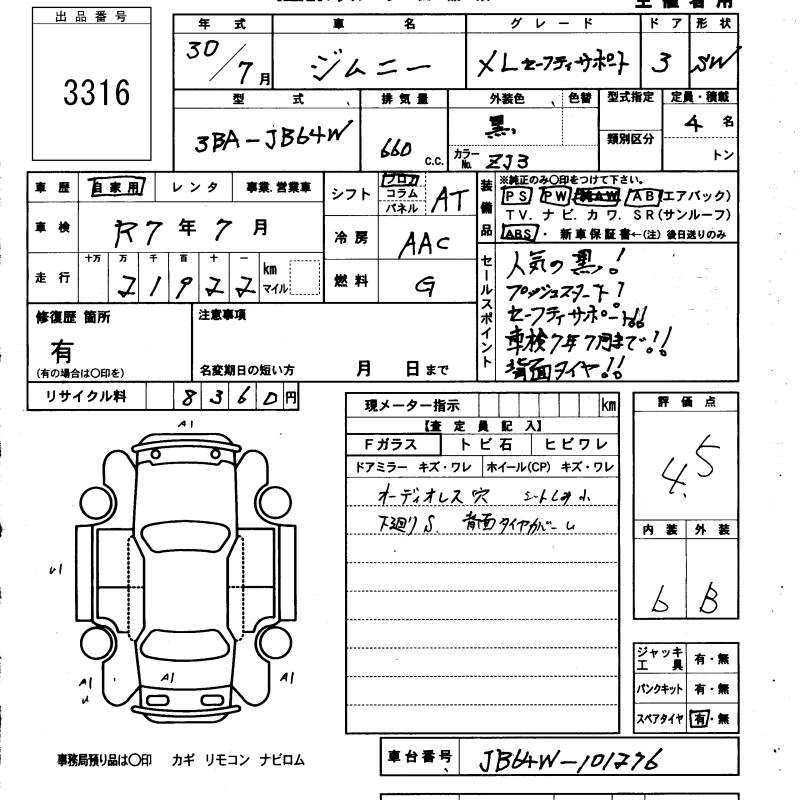 出品番号
3316
年式 車名 グレード ドア 形状
30/7月 ジムニー XLセーフティサポート 3 SW
型式 排気量 外装色 色替 型式指定 定員・積載
3BA-JB64W 660 c.c. 黒 カラーNo. ZJ3 類別区分 4名 トン
車歴 自家用 レンタ 事業.営業車
車検 R7年7月
走行 十万 万 千 百 十 一
21922 km マイル
シフト フロア コラム パネル AT
冷房 AAC
燃料 G
装備品 ※純正のみ〇印をつけて下さい。
PS PW 純AW AB(エアバック)
TV. ナビ. カワ. SR(サンルーフ)
ABS・新車保証書←(注)後日送りのみ
セールスポイント
人気の黒!
プッシュスタート!
セーフティサポート!!
車検7年7月まで!!
背面タイヤ!!
修復歴 箇所
有
(有の場合は〇印を)
注意事項
名変期日の短い方 月 日まで
リサイクル料 8360円
現メーター指示 km
【査定員記入】
Fガラス トビ石 ヒビワレ
ドアミラー キズ・ワレ ホイール(CP) キズ・ワレ
オーディオレス 穴 シートしみ小
下廻りS. 背面タイヤカバーU
評価点
4.5
内装 外装
b B
A1
U1
A1
U
A1
A1
ジャッキ工具 有・無
パンクキット 有・無
スペアタイヤ 有・無
事務局預り品は〇印 カギ リモコン ナビロム
車台番号 JB64W-101276